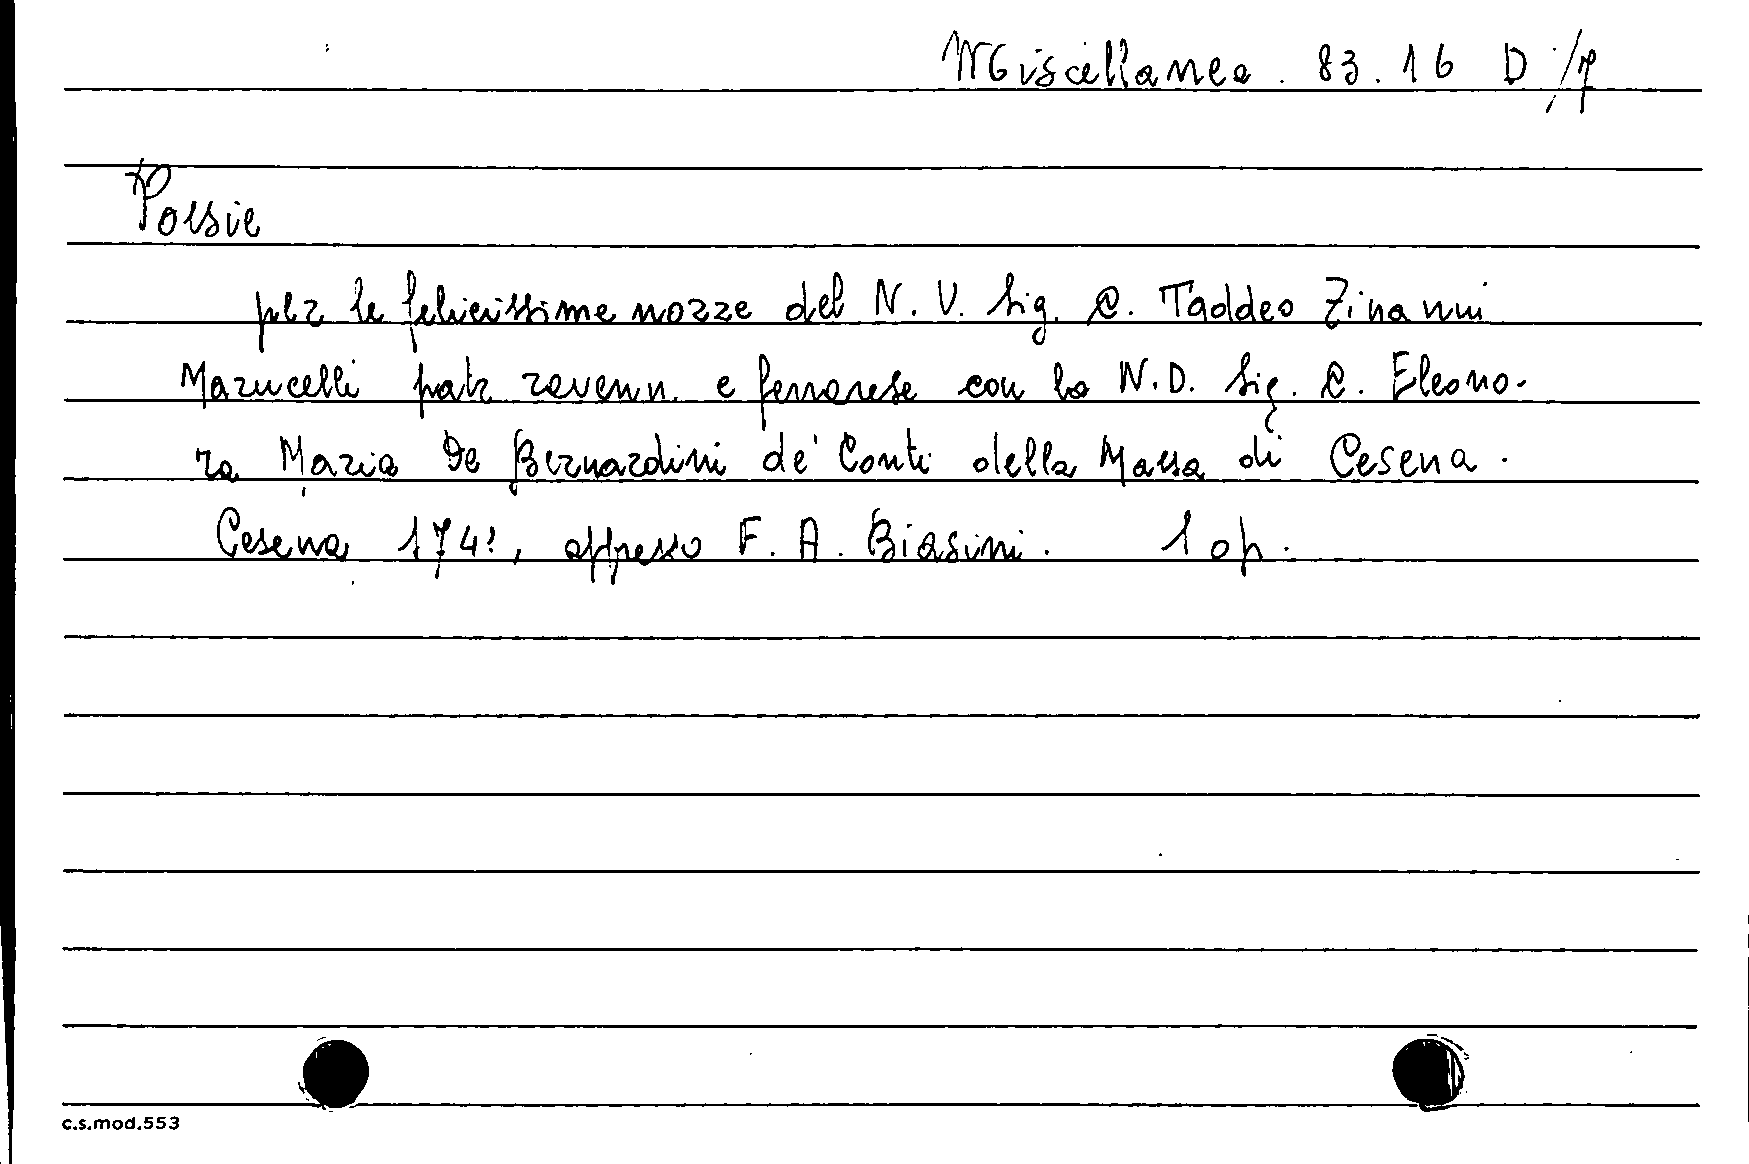 Miscellanea . 83.16 D /7
Poesie
per le felicissime nozze del N. V. Sig. C. Taddeo Zinanni
Marucelli patr ravenn. e ferrarese con la N.D. Sig. C. Eleono-
ra Maria De Bernardini de' Conti della Massa di Cesena.
Cesena , appresso F. A. Biasini. 1 op.
c.s.mod.553